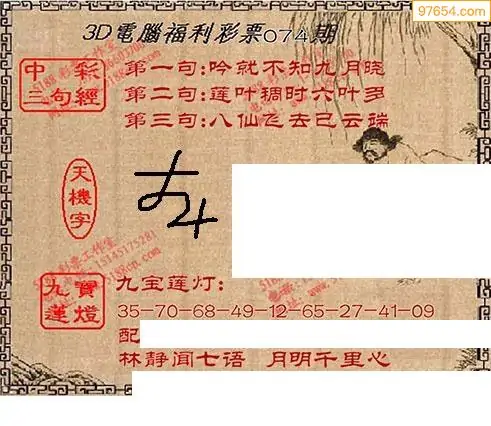 97654.com
3D電腦福利彩票074期
中彩
三句經
第一句:吟就不知九月晓
第二句:莲叶稠时六叶多
第三句:八仙飞去已云端
天機字
九寶
蓮燈
九宝莲灯:
35-70-68-49-12-65-27-41-09
配
林静闻七语 月明千里心